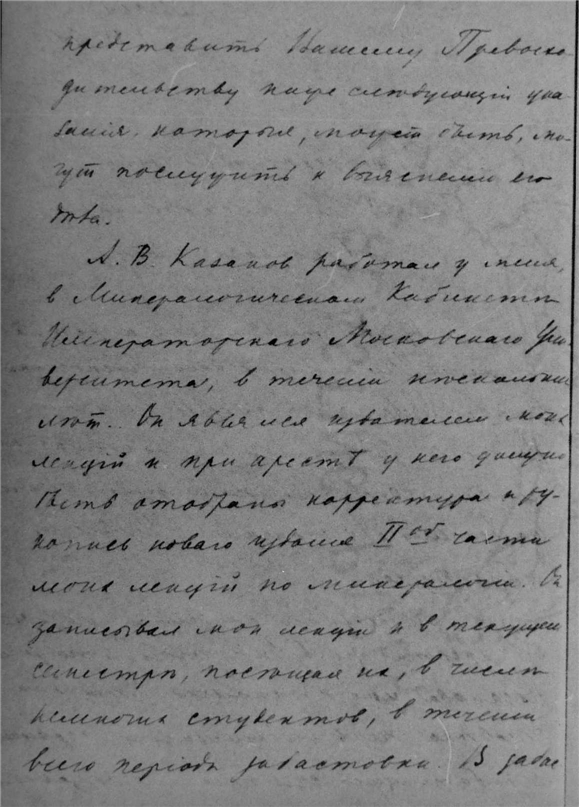 представить Вашему Превосхо-
дительству ниже следующiя ука-
занiя, которыя, может быть, мо-
гут послужить к выяснению его
дѣла.
А. В. Казаков работал у меня,
в Минералогическом Кабинетѣ
Императорскаго Московскаго Уни-
верситета, в теченiи нѣскольких
лѣт. Он являлся издателем моих
лекцiй и при арестѣ у него должно
быть отобраны корректура и ру-
копись новаго изданiя II ой части
моих лекцiй по минералогiи. Он
записывал мои лекцiи и в текущем
семестрѣ, посѣщая их, в числѣ
немногих студентов, в теченiи
всего перiода забастовки. В